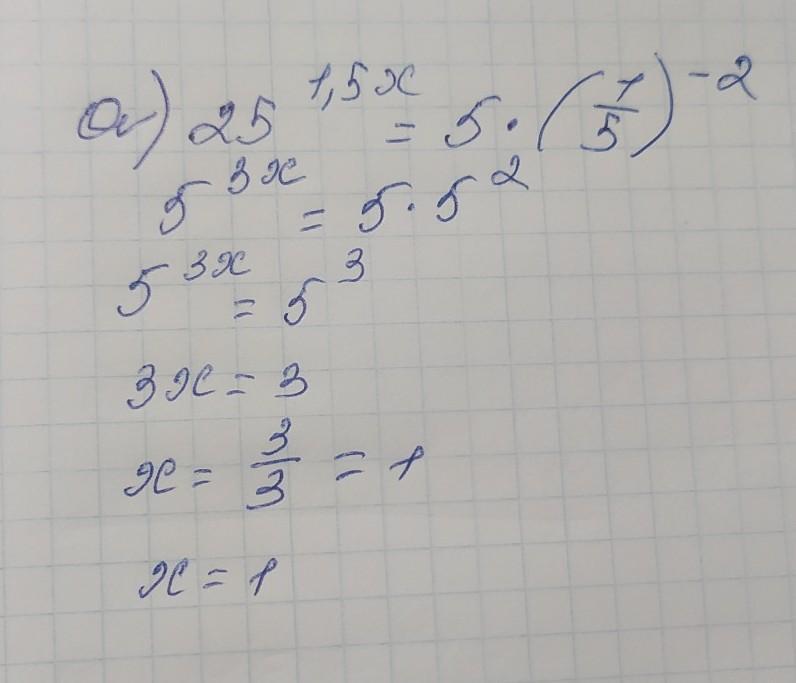 а) 25^{1,5x} = 5 · (1/5)^{-2}
5^{3x} = 5 · 5^2
5^{3x} = 5^3
3x = 3
x = 3/3 = 1
x = 1